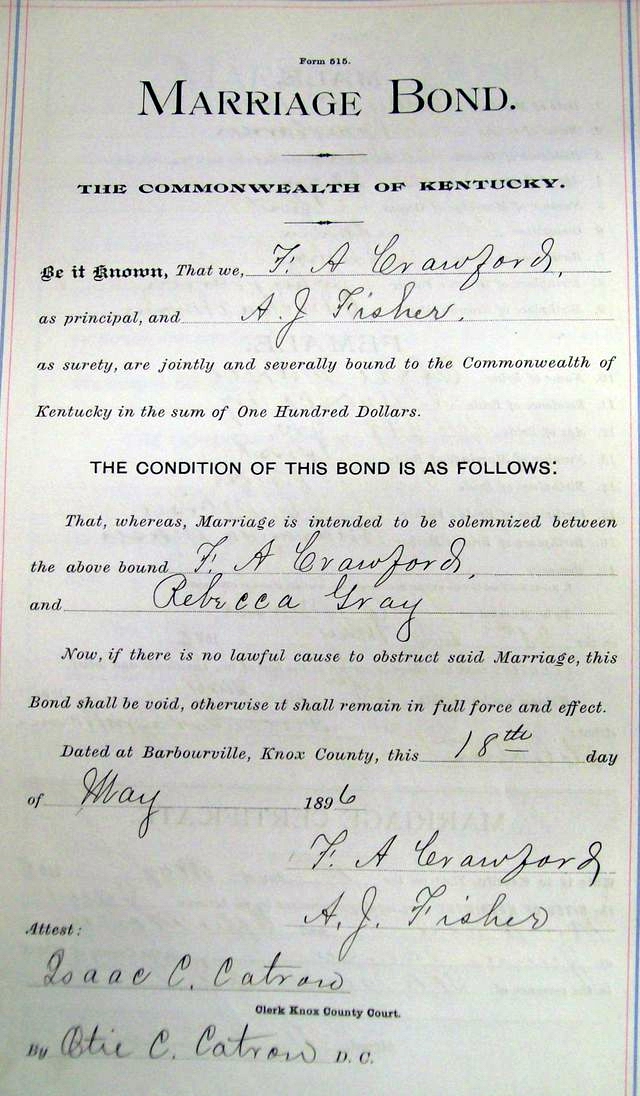 Form 515.
MARRIAGE BOND.
THE COMMONWEALTH OF KENTUCKY.
Be it Known, That we, F. A Crawford,
as principal, and A. J Fisher,
as surety, are jointly and severally bound to the Commonwealth of
Kentucky in the sum of One Hundred Dollars.
THE CONDITION OF THIS BOND IS AS FOLLOWS:
That, whereas, Marriage is intended to be solemnized between
the above bound F. A Crawford,
and Rebecca Gray
Now, if there is no lawful cause to obstruct said Marriage, this
Bond shall be void, otherwise it shall remain in full force and effect.
Dated at Barbourville, Knox County, this 18th day
of May 1896
F. A Crawford
A. J. Fisher
Attest:
Isaac C. Catron
Clerk Knox County Court.
By Otie C. Catron D. C.